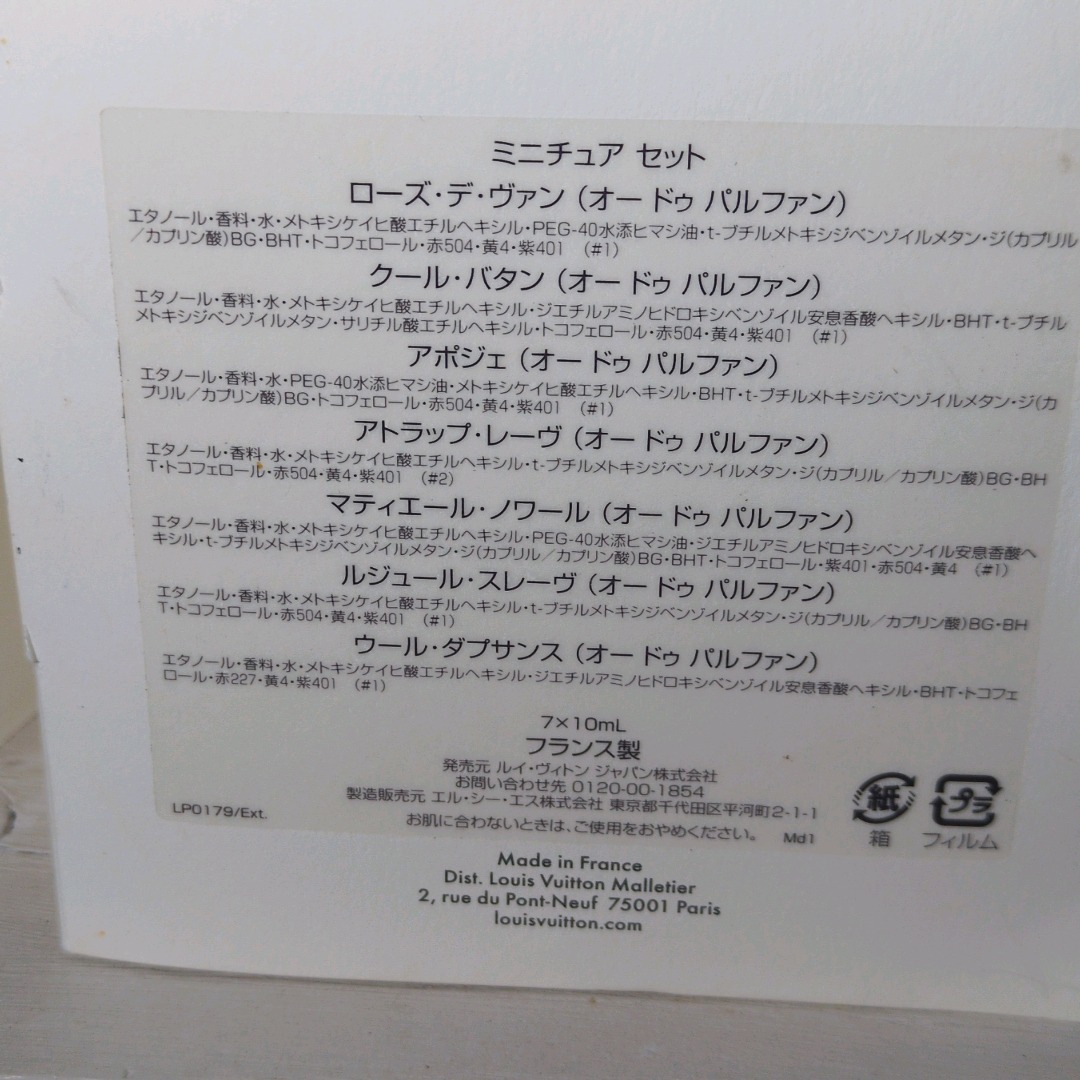 ミニチュア セット
ローズ・デ・ヴァン（オー ドゥ パルファン）
エタノール・香料・水・メトキシケイヒ酸エチルヘキシル・PEG-40水添ヒマシ油・t-ブチルメトキシジベンゾイルメタン・ジ(カプリル
／カプリン酸)BG・BHT・トコフェロール・赤504・黄4・紫401　(#1)
クール・バタン（オー ドゥ パルファン）
エタノール・香料・水・メトキシケイヒ酸エチルヘキシル・ジエチルアミノヒドロキシベンゾイル安息香酸ヘキシル・BHT・t-ブチル
メトキシジベンゾイルメタン・サリチル酸エチルヘキシル・トコフェロール・赤504・黄4・紫401　(#1)
アポジェ（オー ドゥ パルファン）
エタノール・香料・水・PEG-40水添ヒマシ油・メトキシケイヒ酸エチルヘキシル・BHT・t-ブチルメトキシジベンゾイルメタン・ジ(カ
プリル／カプリン酸)BG・トコフェロール・赤504・黄4・紫401　(#1)
アトラップ・レーヴ（オー ドゥ パルファン）
エタノール・香料・水・メトキシケイヒ酸エチルヘキシル・t-ブチルメトキシジベンゾイルメタン・ジ(カプリル／カプリン酸)BG・BH
T・トコフェロール・赤504・黄4・紫401　(#2)
マティエール・ノワール（オー ドゥ パルファン）
エタノール・香料・水・メトキシケイヒ酸エチルヘキシル・PEG-40水添ヒマシ油・ジエチルアミノヒドロキシベンゾイル安息香酸ヘ
キシル・t-ブチルメトキシジベンゾイルメタン・ジ(カプリル／カプリン酸)BG・BHT・トコフェロール・紫401・赤504・黄4　(#1)
ルジュール・スレーヴ（オー ドゥ パルファン）
エタノール・香料・水・メトキシケイヒ酸エチルヘキシル・t-ブチルメトキシジベンゾイルメタン・ジ(カプリル／カプリン酸)BG・BH
T・トコフェロール・赤504・黄4・紫401　(#1)
ウール・ダプサンス（オー ドゥ パルファン）
エタノール・香料・水・メトキシケイヒ酸エチルヘキシル・ジエチルアミノヒドロキシベンゾイル安息香酸ヘキシル・BHT・トコフェ
ロール・赤227・黄4・紫401　(#1)
7×10mL
フランス製
発売元 ルイ・ヴィトン ジャパン株式会社
お問い合わせ先 0120-00-1854
製造販売元 エル・シー・エス株式会社 東京都千代田区平河町2-1-1
お肌に合わないときは、ご使用をおやめください。
LP0179/Ext.
Md1
紙
箱
プラ
フィルム
Made in France
Dist. Louis Vuitton Malletier
2, rue du Pont-Neuf 75001 Paris
louisvuitton.com